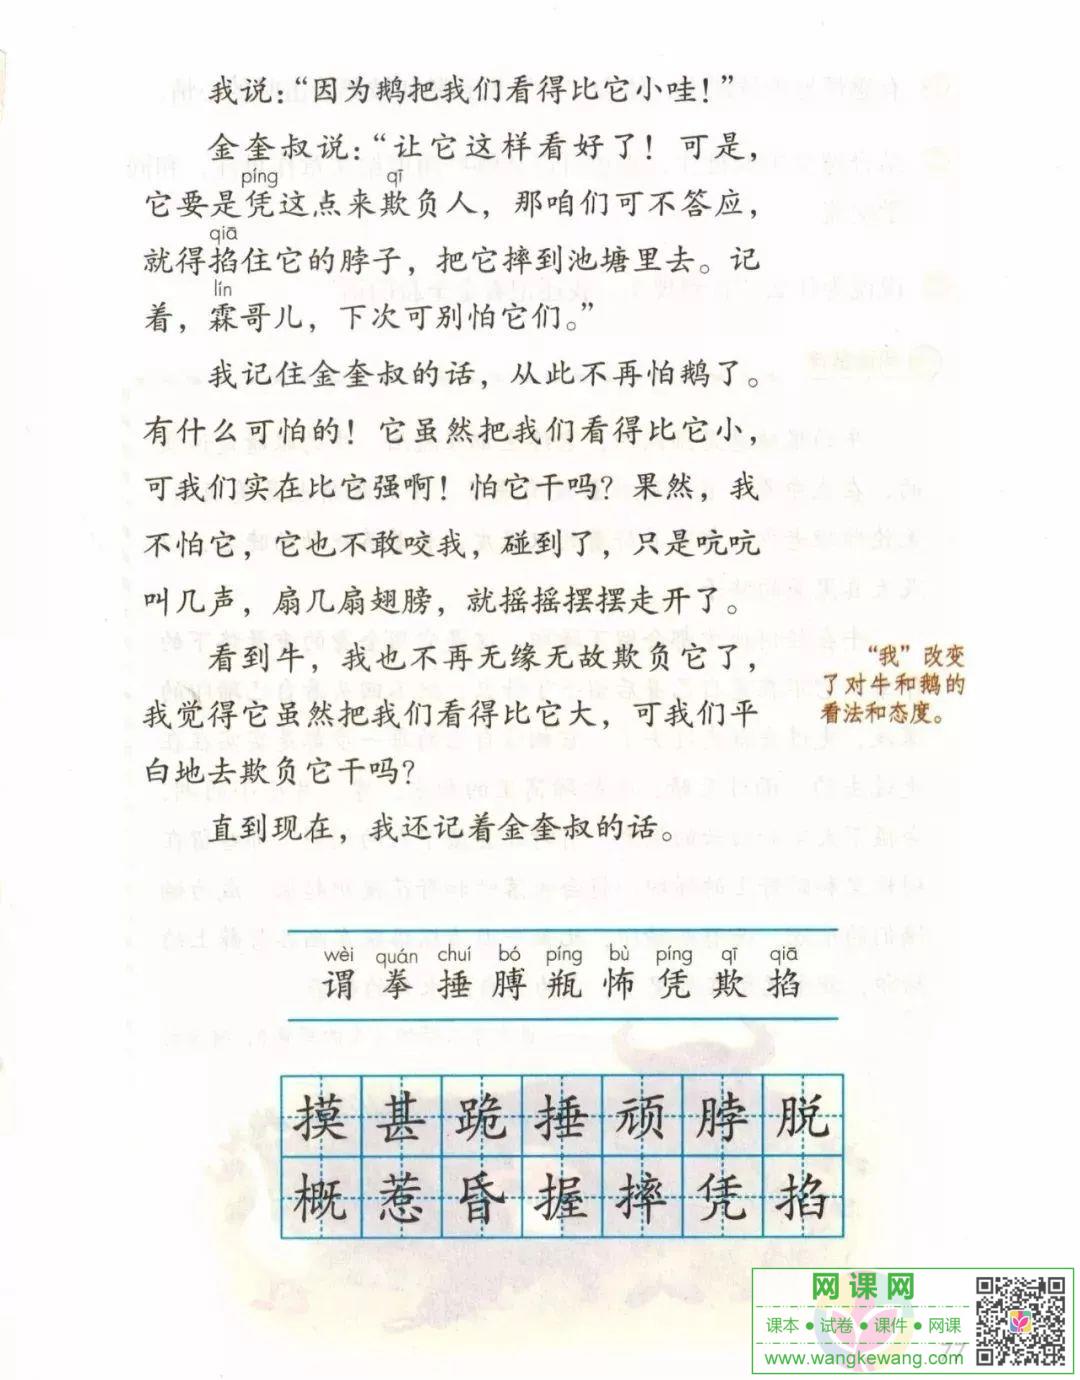 我说：“因为鹅把我们看得比它小哇！”
金奎叔说：“让它这样看好了！可是，
píng qī
它要是凭这点来欺负人，那咱们可不答应，
qiā
就得掐住它的脖子，把它摔到池塘里去。记
lín
着，霖哥儿，下次可别怕它们。”
我记住金奎叔的话，从此不再怕鹅了。
有什么可怕的！它虽然把我们看得比它小，
可我们实在比它强啊！怕它干吗？果然，我
不怕它，它也不敢咬我，碰到了，只是吭吭
叫几声，扇几扇翅膀，就摇摇摆摆走开了。
看到牛，我也不再无缘无故欺负它了，
我觉得它虽然把我们看得比它大，可我们平
白地去欺负它干吗？
直到现在，我还记着金奎叔的话。
“我”改变
了对牛和鹅的
看法和态度。
wèi quán chuí bó píng bù píng qī qiā
谓 拳 捶 膊 瓶 怖 凭 欺 掐
摸 甚 跪 捶 顽 脖 脱
概 惹 昏 握 摔 凭 掐
网课网
课本●试卷●课件●网课
www.wangkewang.com
77